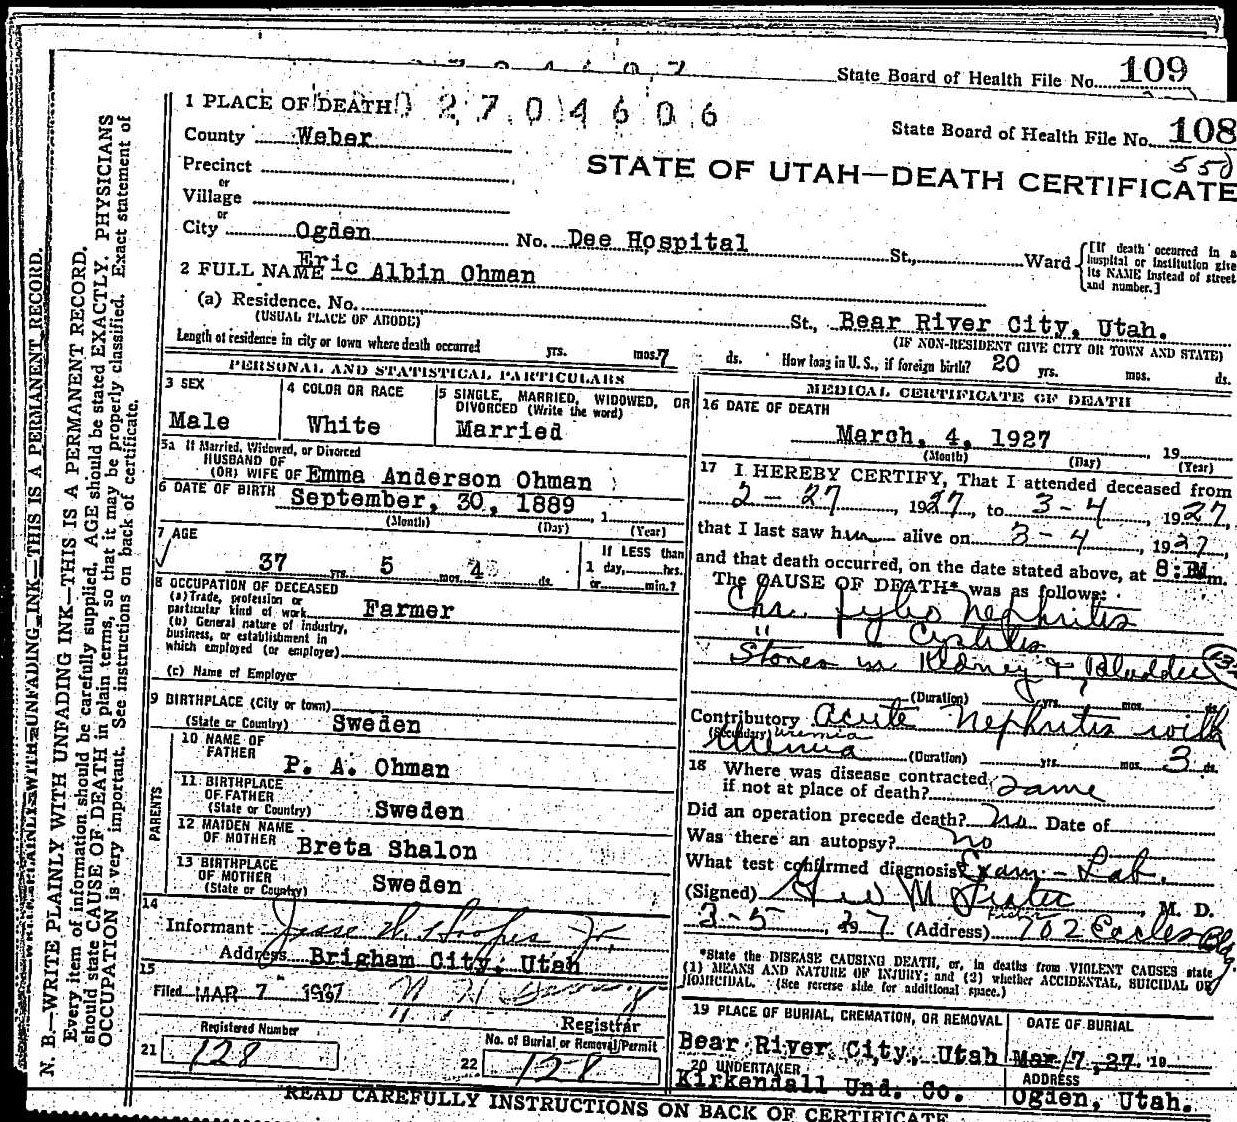 State Board of Health File No. 109
02704606
State Board of Health File No. 108
550
STATE OF UTAH—DEATH CERTIFICATE
1 PLACE OF DEATH
County Weber
Precinct
or
Village
or
City Ogden No. Dee Hospital St., Ward [If death occurred in a hospital or institution give its NAME instead of street and number.]
2 FULL NAME Eric Albin Ohman
(a) Residence. No. St., Bear River City, Utah.
(USUAL PLACE OF ABODE) (IF NON-RESIDENT GIVE CITY OR TOWN AND STATE)
Length of residence in city or town where death occurred yrs. mos. 7 ds. How long in U.S., if foreign birth? 20 yrs. mos. ds.
PERSONAL AND STATISTICAL PARTICULARS
3 SEX
Male
4 COLOR OR RACE
White
5 SINGLE, MARRIED, WIDOWED, OR
DIVORCED (Write the word)
Married
5a If Married, Widowed, or Divorced
HUSBAND OF
(OR) WIFE OF Emma Anderson Ohman
6 DATE OF BIRTH September, 30, 1889, 1
(Month) (Day) (Year)
7 AGE
37 yrs. 5 mos. 4 ds.
If LESS than
1 day, hrs.
or min.?
8 OCCUPATION OF DECEASED
(a) Trade, profession or
particular kind of work Farmer
(b) General nature of industry,
business, or establishment in
which employed (or employer)
(c) Name of Employer
9 BIRTHPLACE (City or town)
(State or Country) Sweden
PARENTS
10 NAME OF
FATHER P. A. Ohman
11 BIRTHPLACE
OF FATHER
(State or Country) Sweden
12 MAIDEN NAME
OF MOTHER Breta Shalon
13 BIRTHPLACE
OF MOTHER
(State or Country) Sweden
14
Informant Jesse W. Hooper Jr.
Address Brigham City, Utah
15
Filed MAR 7 1927
Registrar
21 Registered Number
128
22 No. of Burial or Removal Permit
128
MEDICAL CERTIFICATE OF DEATH
16 DATE OF DEATH
March, 4, 1927, 19
(Month) (Day) (Year)
17 I HEREBY CERTIFY, That I attended deceased from
2-27, 1927, to 3-4, 1927,
that I last saw him alive on 3-4, 1927,
and that death occurred, on the date stated above, at 8: m.
The CAUSE OF DEATH* was as follows:
Chr. Pyelo Nephritis
" Cystitis
Stones in Kidney & Bladder
(Duration) yrs. mos. ds.
Contributory Acute Nephritis with
(Secondary) uremia
Uremia (Duration) yrs. mos. 3 ds.
18 Where was disease contracted,
if not at place of death? Same
Did an operation precede death? No Date of
Was there an autopsy? No
What test confirmed diagnosis? Exam - Lab.
(Signed) M. D.
3-5, 1927 (Address) 702 Eccles Bldg.
*State the DISEASE CAUSING DEATH, or, in deaths from VIOLENT CAUSES state
(1) MEANS AND NATURE OF INJURY; and (2) whether ACCIDENTAL, SUICIDAL OR
HOMICIDAL. (See reverse side for additional space.)
19 PLACE OF BURIAL, CREMATION, OR REMOVAL
Bear River City, Utah
DATE OF BURIAL
Mar/7,27, 19
20 UNDERTAKER
Kirkendall Und. Co.
ADDRESS
Ogden, Utah.
READ CAREFULLY INSTRUCTIONS ON BACK OF CERTIFICATE
N. B.—WRITE PLAINLY WITH UNFADING INK—THIS IS A PERMANENT RECORD.
Every item of information should be carefully supplied. AGE should be stated EXACTLY. PHYSICIANS
should state CAUSE OF DEATH in plain terms, so that it may be properly classified. Exact statement of
OCCUPATION is very important. See instructions on back of certificate.